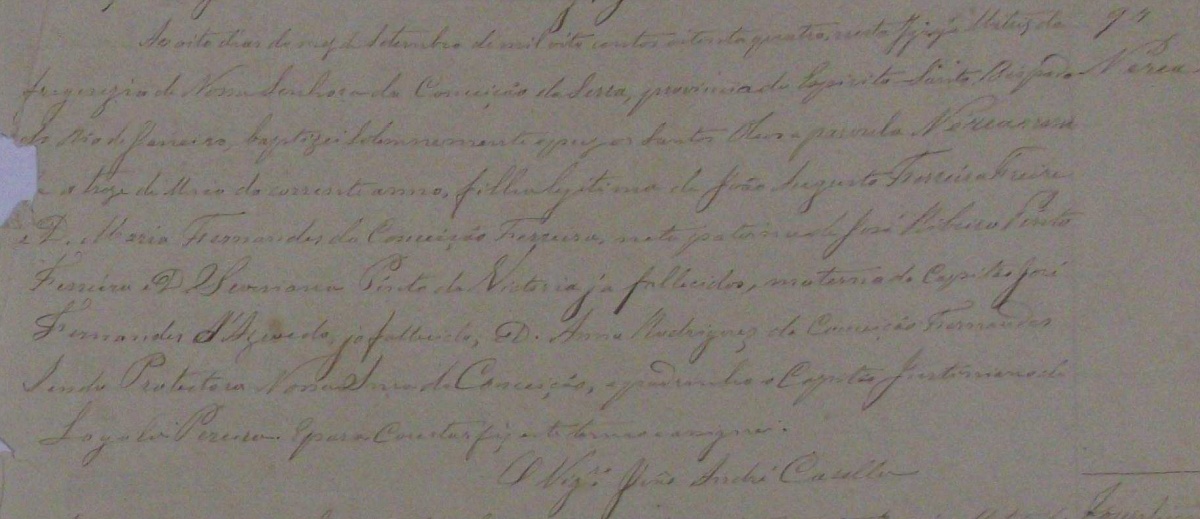 Ao oito dias do mez de Setembro de mil oito centos oitenta quatro, nesta Igreja Matriz da
freguezia de Nossa Senhora da Conceição da Serra, provincia do Espirito Santo Bispado
do Rio de Janeiro, baptizei solemnemente e puz os Santos Oleos a parvula Nerea
a treze de Maio do corrente anno, filha legitima de João Augusto Ferreira Freire
e D. Maria Fernandes da Conceição Ferreira, neta paterna de José Ribeiro Pinto
Ferreira e D. Pinto da Victoria já fallecidos, materna do Capitão José
Fernandes d'Azevedo, já fallecido, e D. Anna Rodrigues da Conceição Fernandes
Sendo Protectora Nossa Snra da Conceição, e padrinho o Capitão Justiniano de
Pereira. E para Constar fiz este termo e assignei.
O Vigº João André Casella
94
Nerea